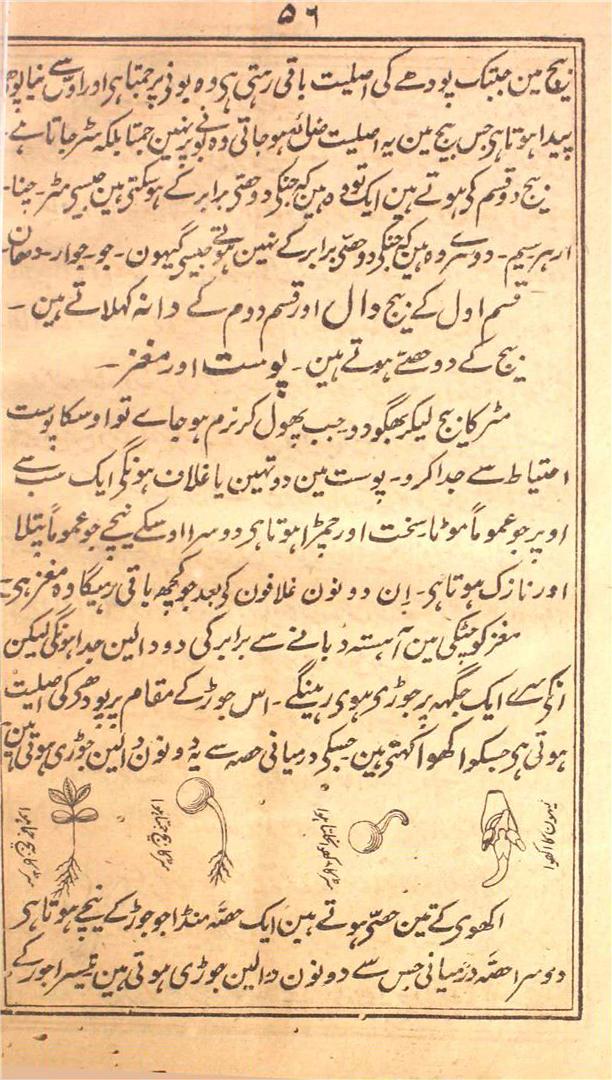 ۵۶
بیج مین جبتک پودھے کی اصلیت باقی رہتی ہی وہ بونی پر جمتا ہی اور اوس سے نیا پودھا
پیدا ہوتا ہی جس بیج مین یہ اصلیت ضائع ہو جاتی وہ بونے پر نہین جمتا بلکہ سٹر جاتا ہے۔
بیج دو قسم کی ہوتے ہین ایک تو وہ ہین کہ جنکی دو حصّی برابر کے ہو سکتی ہین جیسی مٹر۔ چنا۔
ارہر۔ سیم۔ دوسرے وہ ہین کہ جنکی دو حصّی برابر کے نہین ہوتے جیسی گیہون۔ جو۔ جوار۔ دھان۔
قسم اول کے بیج دال اور قسم دوم کے دانہ کہلاتے ہین ۔
بیج کے دو حصّے ہوتے ہین ۔ پوست اور مغز ۔
مٹر کا بیج لیکر بھگو دو۔ جب پھول کر نرم ہو جاے تو اوسکا پوست
احتیاط سے جدا کرو۔ پوست مین دو تہین یا غلاف ہونگی ایک سب سے
اوپر جو عموماً موٹا سخت اور چمڑا ہوتا ہی دوسرا اوسکے نیچے جو عموماً پتلا
اور نازک ہوتا ہی۔ اِن دونون غلافون کی بعد جو کچھ باقی رہیگا وہ مغز ہی۔
مغز کو چٹکی مین آہستہ دبانے سے برابر کی دو دالین جدا ہونگی لیکن
انکی سرے ایک جگہہ پر جوڑی ہوی رہینگے ۔ اس جوڑ کے مقام پر پودھی کی اصلیت
ہوتی ہی جسکو اکھوا کہتی ہین۔ جسکی درمیانی حصہ سے یہ دونون دالین جوڑی ہوتی ہین
گیہون کا اکھوا
اکھوی کے تین حصّی ہوتے ہین ایک حصّہ منڈا جو جوڑ کے نیچے ہوتا ہی
دوسرا حصّہ درمیانی جس سے دونون دالین جوڑی ہوتی ہین تیسرا جوڑ کے